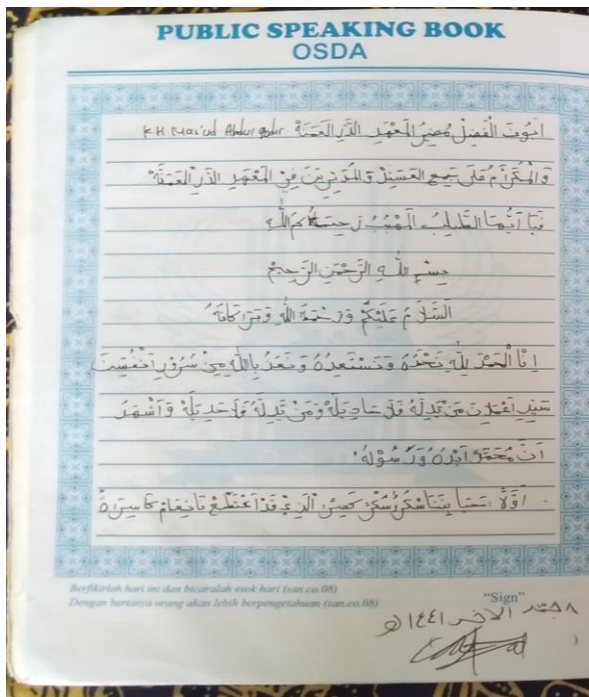 PUBLIC SPEAKING BOOK
OSDA
ابوت الفضل مضير المعهد الدر العمنة KH Mas'ud Abdul qodir
والمكرام على جمع العستيذ والمؤتيرين في المعهد الدر العمنة
فيا أيها الطليب المهبب رحمكم الله
بسم الله الرحمن الرحيم
السلام عليكم ورحمة الله وبراكاته
انا الحمد لله نحمده ونستعده ونعد بالله من سرور انفسن
سيد اعمالن من تدله فل حاد يله ومن تدله فلا حد يله واشهد
ان محمدا ابده ورسوله
اولا حيا بنا شكر شكر الذي قد اعتطع نا نعام كاسيرة
Berfikirlah hari ini dan bicaralah esok hari (san.co.08)
Dengan bertanya orang akan lebih berpengetahuan (san.co.08)
"Sign"
٨ الاخر ١٤٤١ه